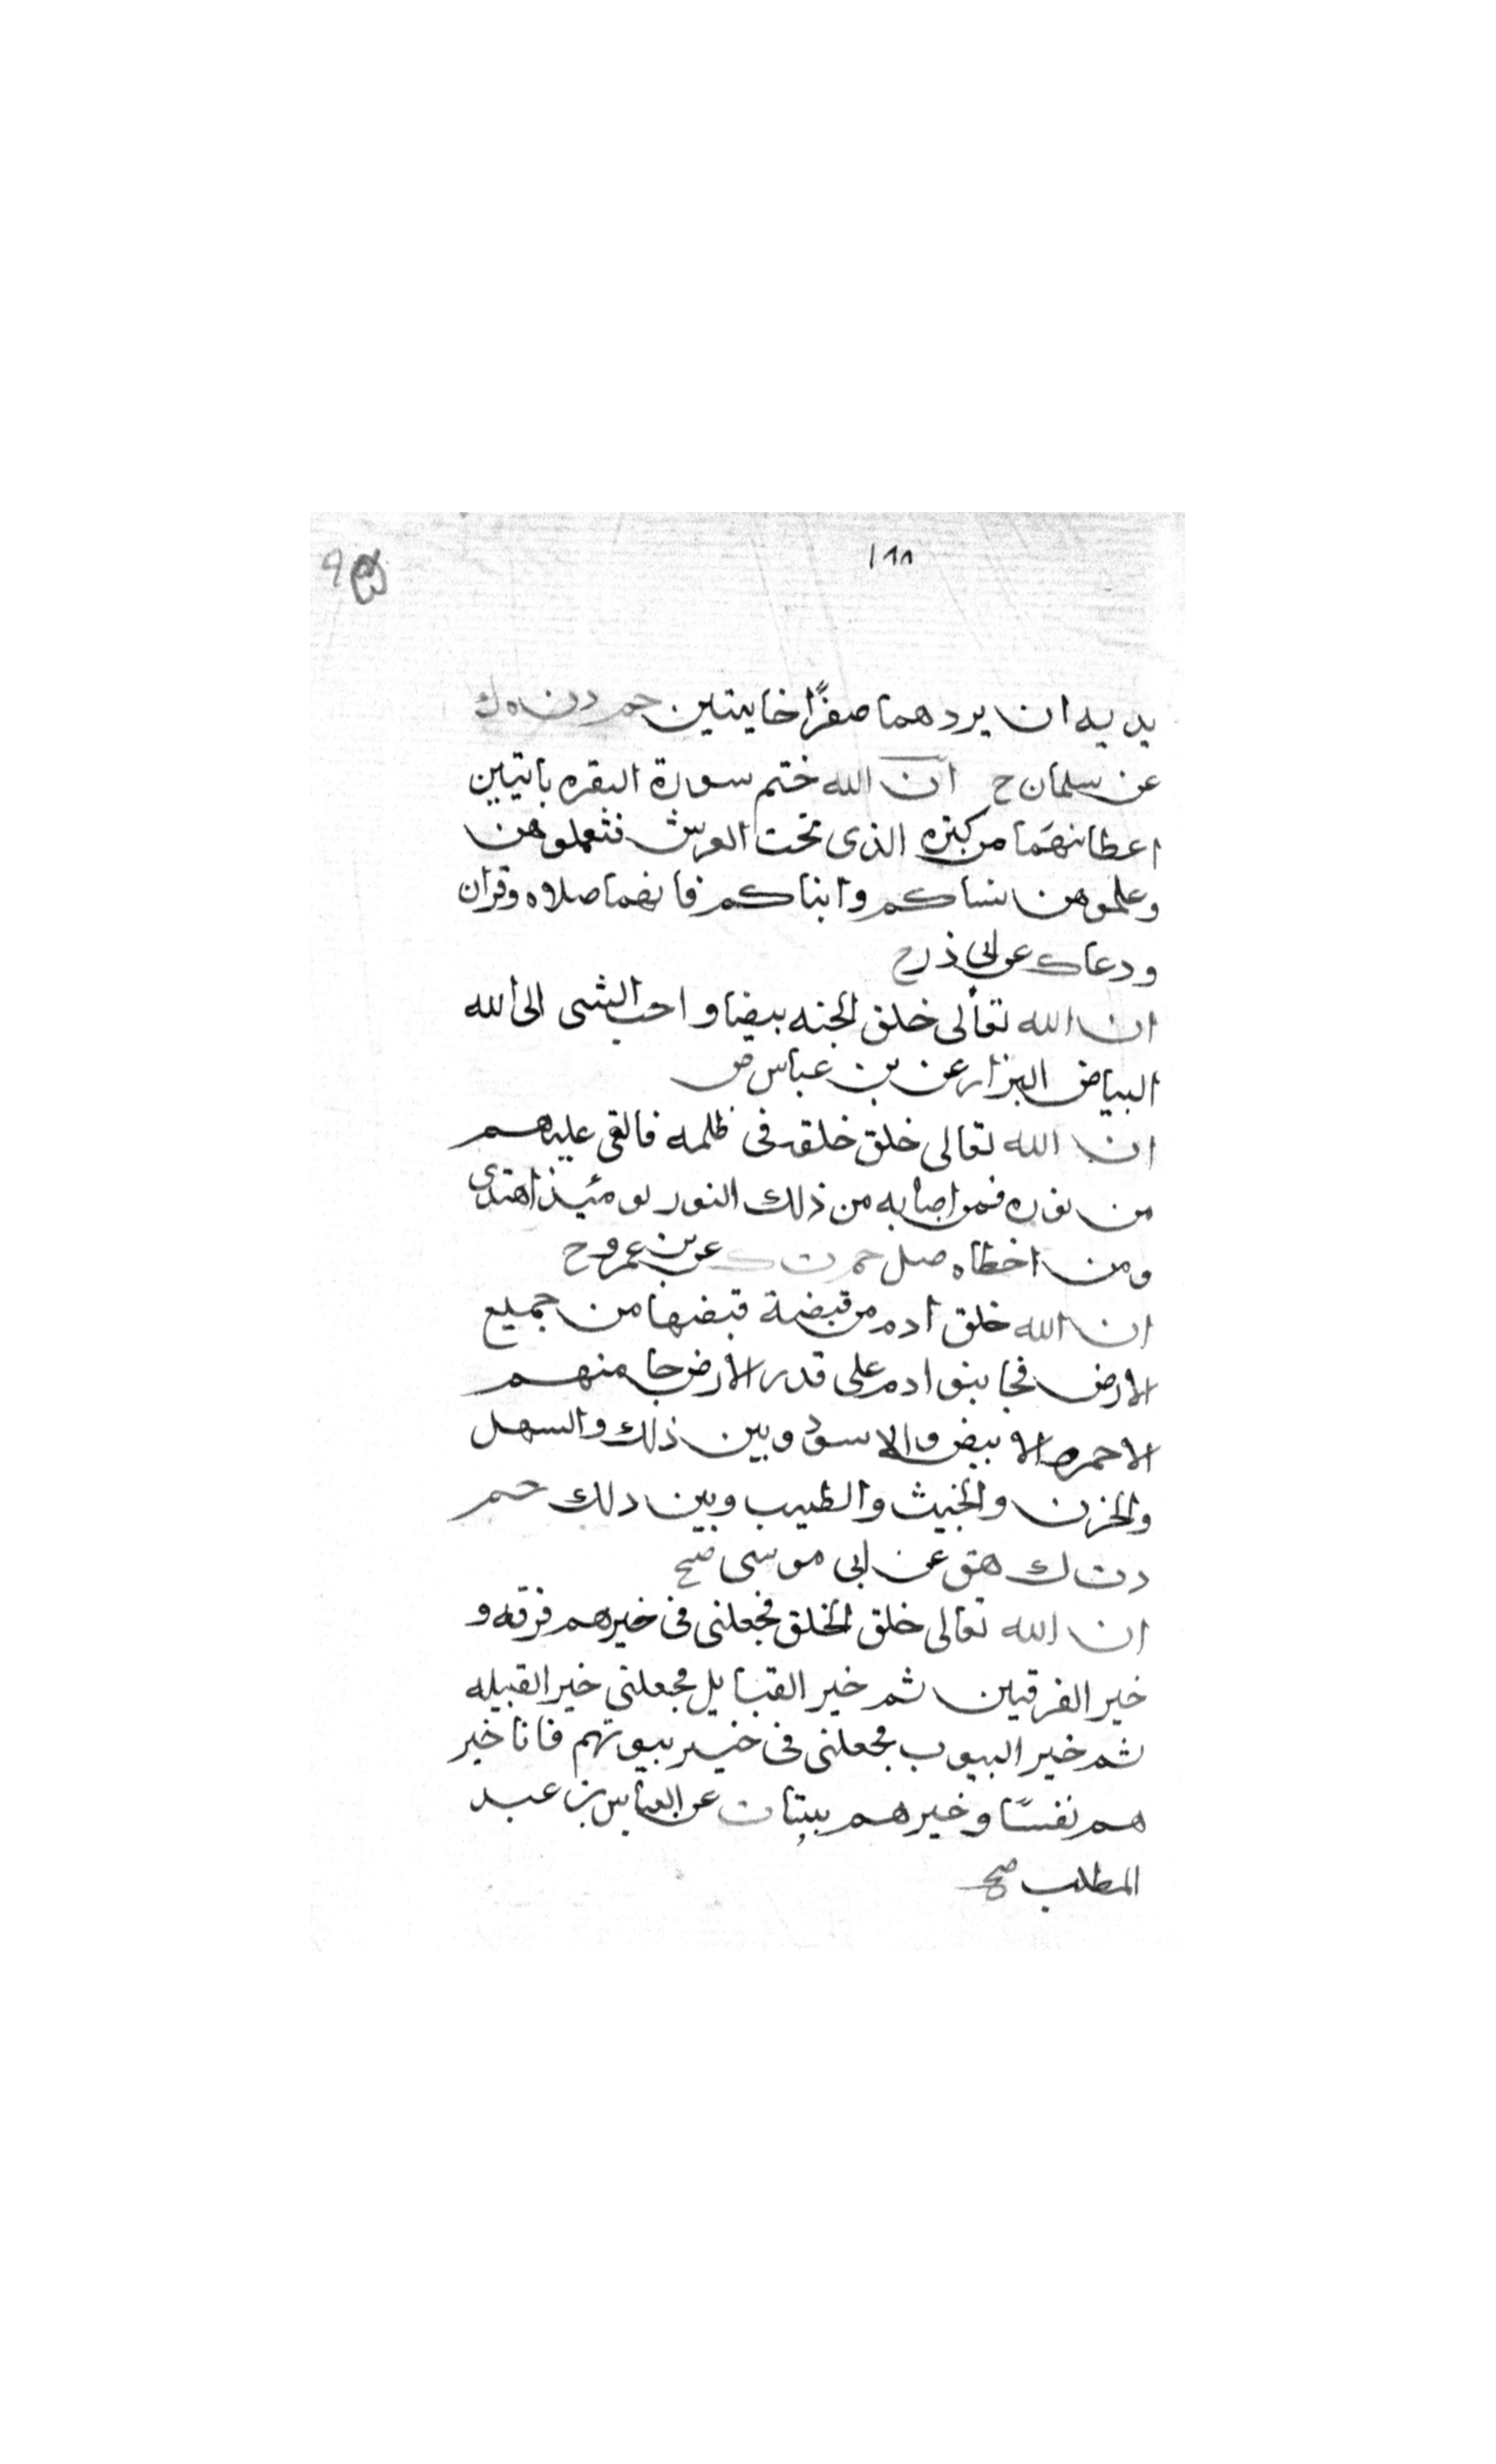 ١٨٨
يديه ان يردهما صفرًا خايبتين حم د ت ه ك
عن سلمان ح ان الله ختم سورة البقره بايتين
اعطانيهما من كنزه الذى تحت العرش فتعلموهن
وعلموهن نساكم وابناكم فانهما صلاه وقران
ودعا ك عن ابى ذر ح
ان الله تعالى خلق الجنه بيضا واحب الشى الى الله
البياض البزار عن بن عباس ض
ان الله تعالى خلق خلقه فى ظلمه فالقى عليهم
من نوره فمن اصابه من ذلك النور يومئيذ اهتدى
ومن اخطاه ضل حم ت ك عن بن عمرو ح
ان الله خلق ادم من قبضة قبضها من جميع
الارض فجا بنو ادم على قدر الارض جا منهم
الاحمر والابيض والاسود وبين ذلك والسهل
والحزن والخبيث والطيب وبين دلك حم
د ت ك هق عن ابى موسى صح
ان الله تعالى خلق الخلق فجعلنى فى خيرهم فرقه و
خير الفرقين ثم خير القبايل فجعلنى خير القبيله
ثم خير البيوب فجعلنى فى خير بيوتهم فانا خير
هم نفسًا وخيرهم بيتا ت عن العباس بن عبد
المطلب صح